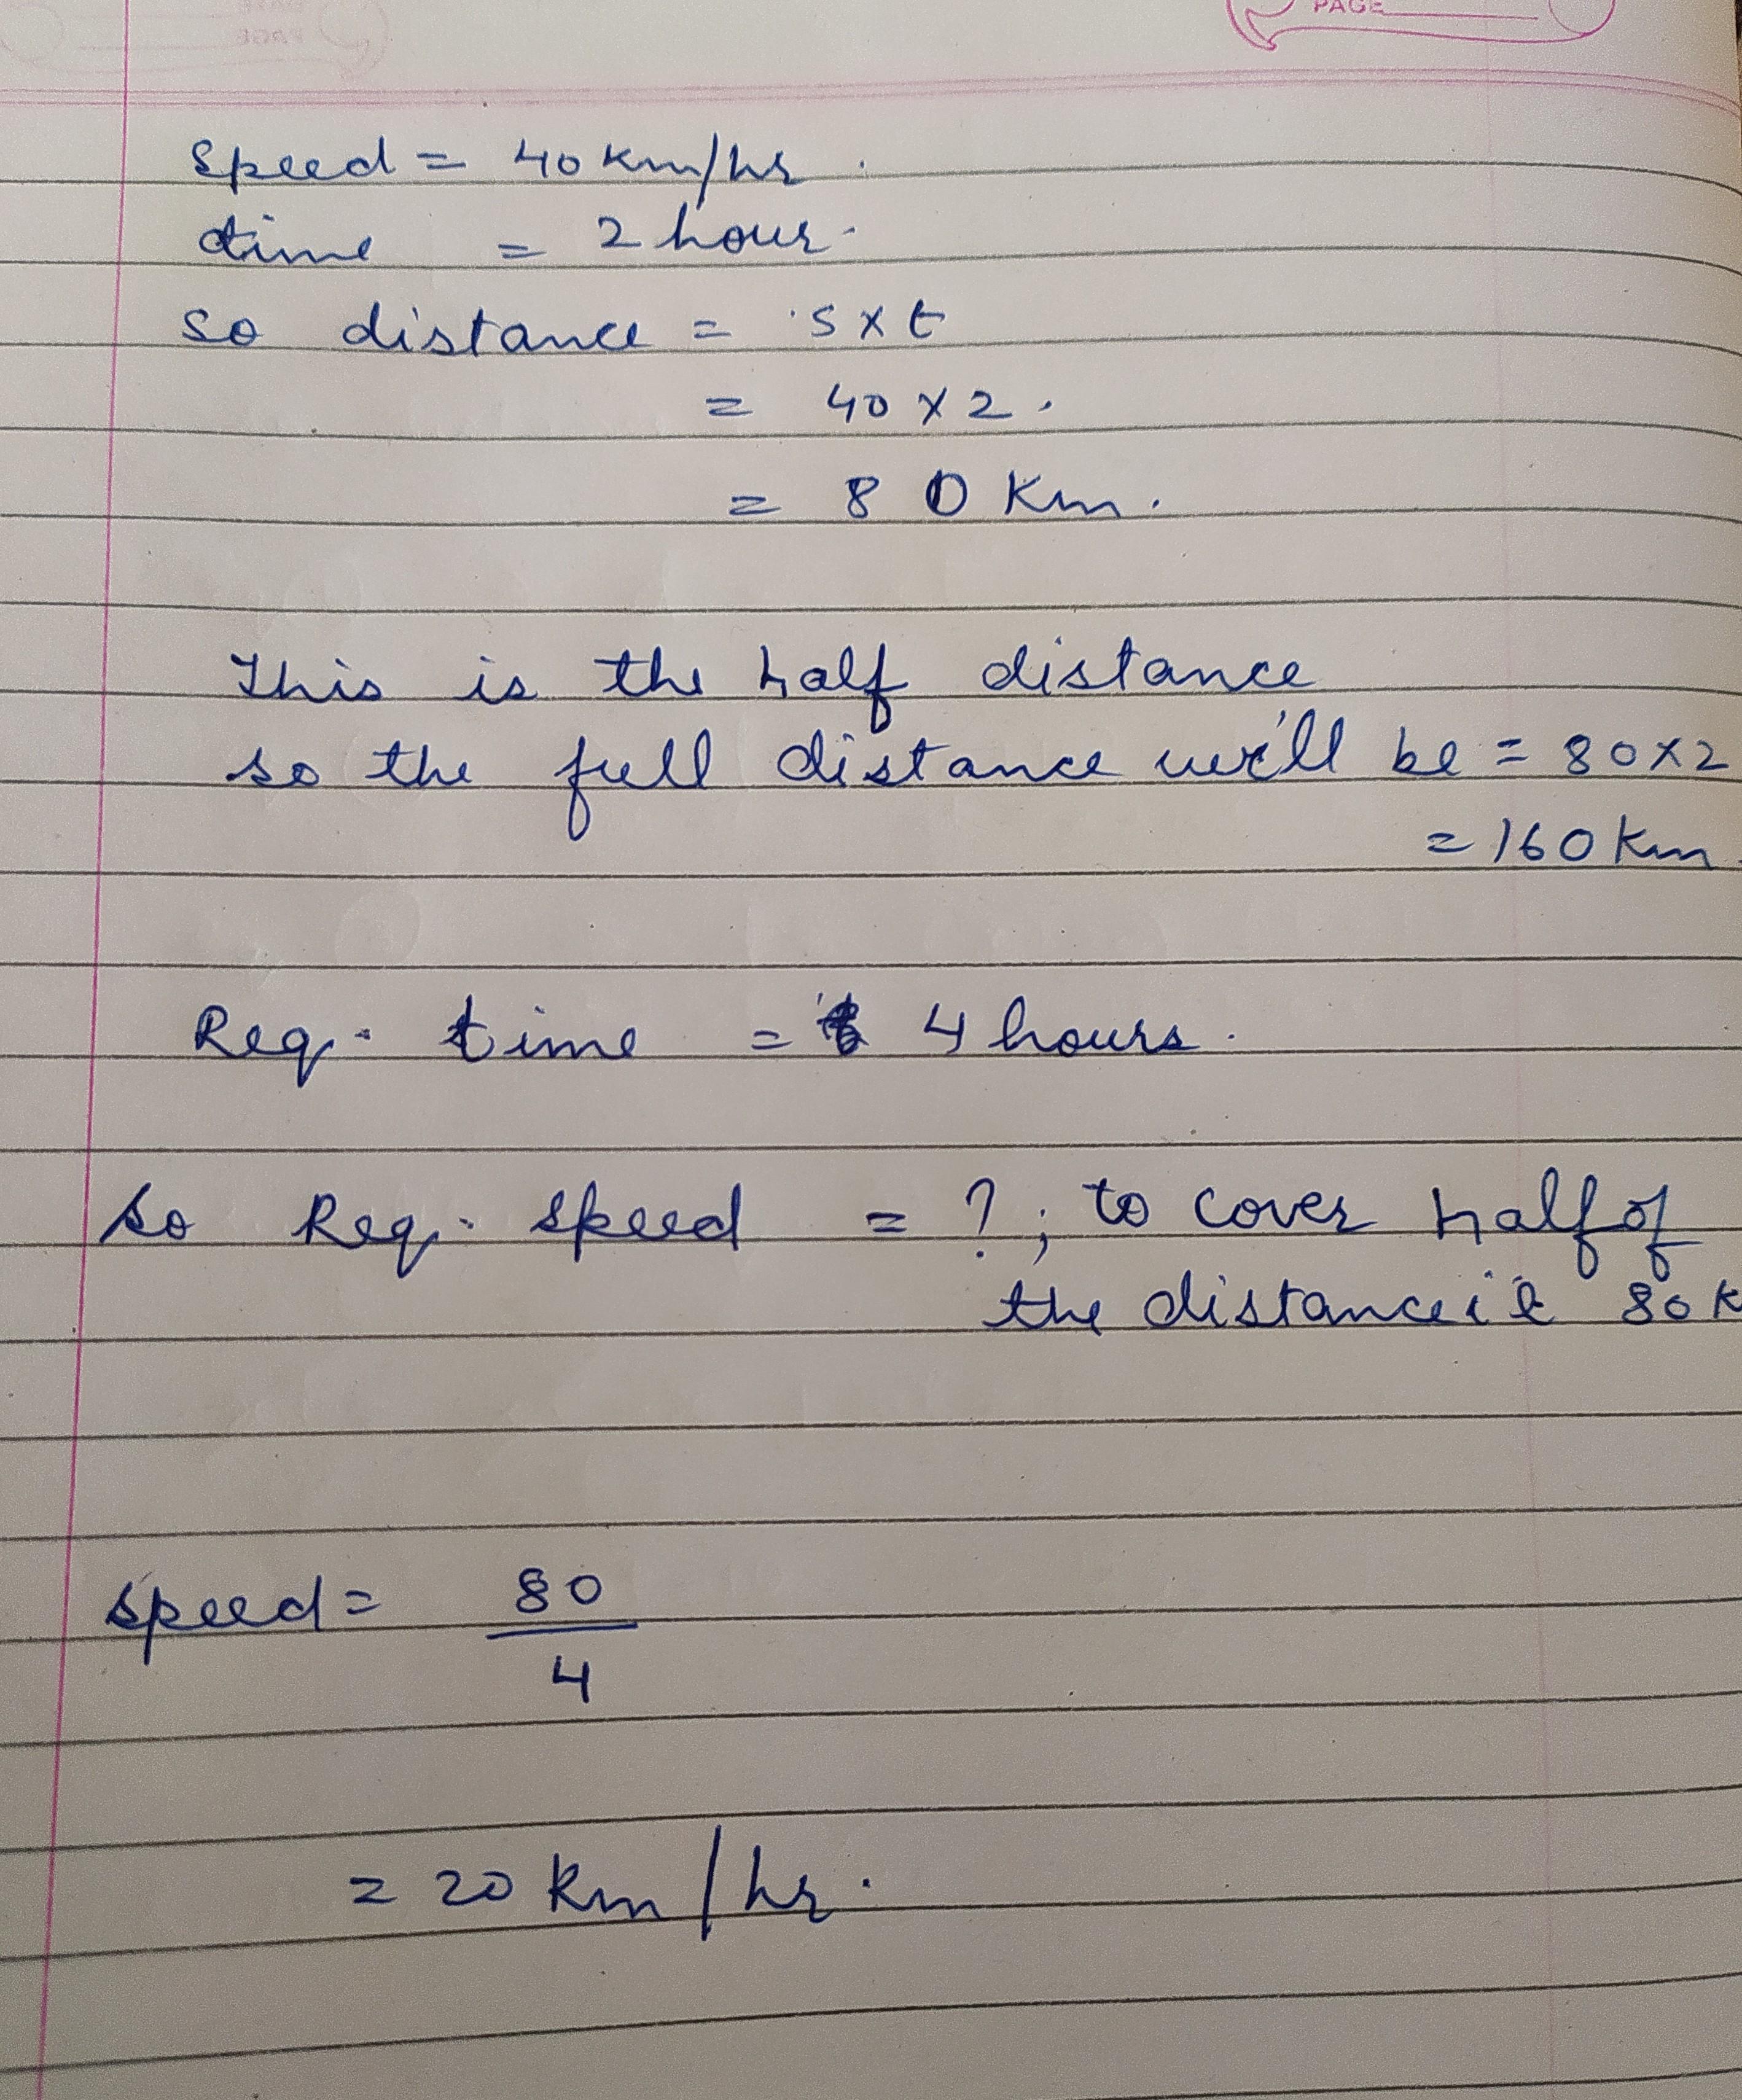 PAGE
Speed = 40 km/hr.
time = 2 hour.
So distance = s x t
= 40 x 2.
= 80 Km.
This is the half distance
so the full distance will be = 80 x 2
= 160 Km.
Req. time = 4 hours.
So Req. speed = ?; to cover half of
the distance i.e 80 K
speed = 80
4
= 20 km/hr.